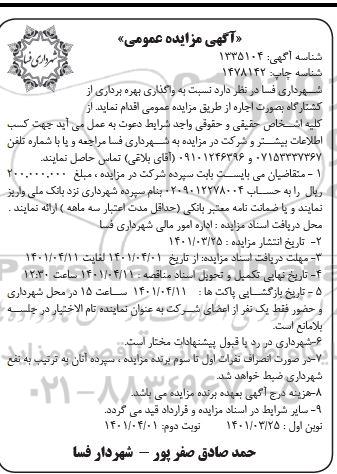 «آگهی مزایده عمومی»
شهرداری فسا
شناسه آگهی: ۱۳۳۵۱۰۴
شناسه چاپ: ۱۴۷۸۱۴۲
شهرداری فسا در نظر دارد نسبت به واگذاری بهره برداری از
کشتارگاه بصورت اجاره از طریق مزایده عمومی اقدام نماید. از
کلیه اشخاص حقیقی و حقوقی واجد شرایط دعوت به عمل می آید جهت کسب
اطلاعات بیشتر و شرکت در مزایده به شهرداری فسا مراجعه و یا با شماره تلفن
۰۷۱۵۳۳۳۷۳۶۷ و ۰۹۱۰۱۲۴۶۳۹۶ (آقای بلاغی) تماس حاصل نمایند.
۱ - متقاضیان می بایست بابت سپرده شرکت در مزایده ، مبلغ ۲۰۰.۰۰۰.۰۰۰
ریال را به حساب ۰۲۰۹۰۱۲۲۷۸۰۰۴ بنام سپرده شهرداری نزد بانک ملی واریز
نمایند و یا ضمانت نامه معتبر بانکی (حداقل مدت اعتبار سه ماهه ) ارائه نمایند .
محل دریافت اسناد مزایده : اداره امور مالی شهرداری فسا
۲- تاریخ انتشار مزایده : ۱۴۰۱/۰۳/۲۵
۳- مهلت دریافت اسناد مزایده: از تاریخ ۱۴۰۱/۰۴/۰۱ لغایت ۱۴۰۱/۰۴/۱۱
۴- تاریخ نهایی تکمیل و تحویل اسناد مناقصه : ۱۴۰۱/۰۴/۱۱ ساعت ۱۲:۳۰
۵ - تاریخ بازگشایی پاکت ها : ۱۴۰۱/۰۴/۱۱ ساعت ۱۵ در محل شهرداری
و حضور فقط یک نفر از اعضای شرکت به عنوان نماینده تام الاختیار در جلسه
بلامانع است.
۶-شهرداری در رد یا قبول پیشنهادات مختار است.
۷-در صورت انصراف نفرات اول تا سوم برنده مزایده ، سپرده آنان به ترتیب به نفع
شهرداری ضبط خواهد شد.
۸-هزینه درج آگهی بعهده برنده مزایده می باشد.
۹- سایر شرایط در اسناد مزایده و قرارداد قید می گردد.
نوبت اول : ۱۴۰۱/۰۳/۲۵ نوبت دوم: ۱۴۰۱/۰۴/۰۱
حمد صادق صفر پور – شهردار فسا
۰۲۱-۸۸۳۴۹۶۷۰